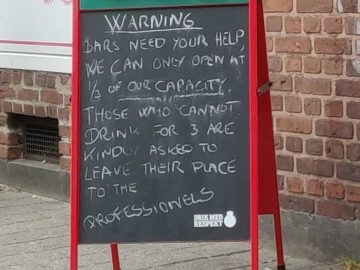 WARNING
BARS NEED YOUR HELP,
WE CAN ONLY OPEN AT
1/3 OF OUR CAPACITY.
THOSE WHO CANNOT
DRINK FOR 3 ARE
KINDLY ASKED TO
LEAVE THEIR PLACE
TO THE
PROFESSIONELS
DRIK MED
RESPEKT